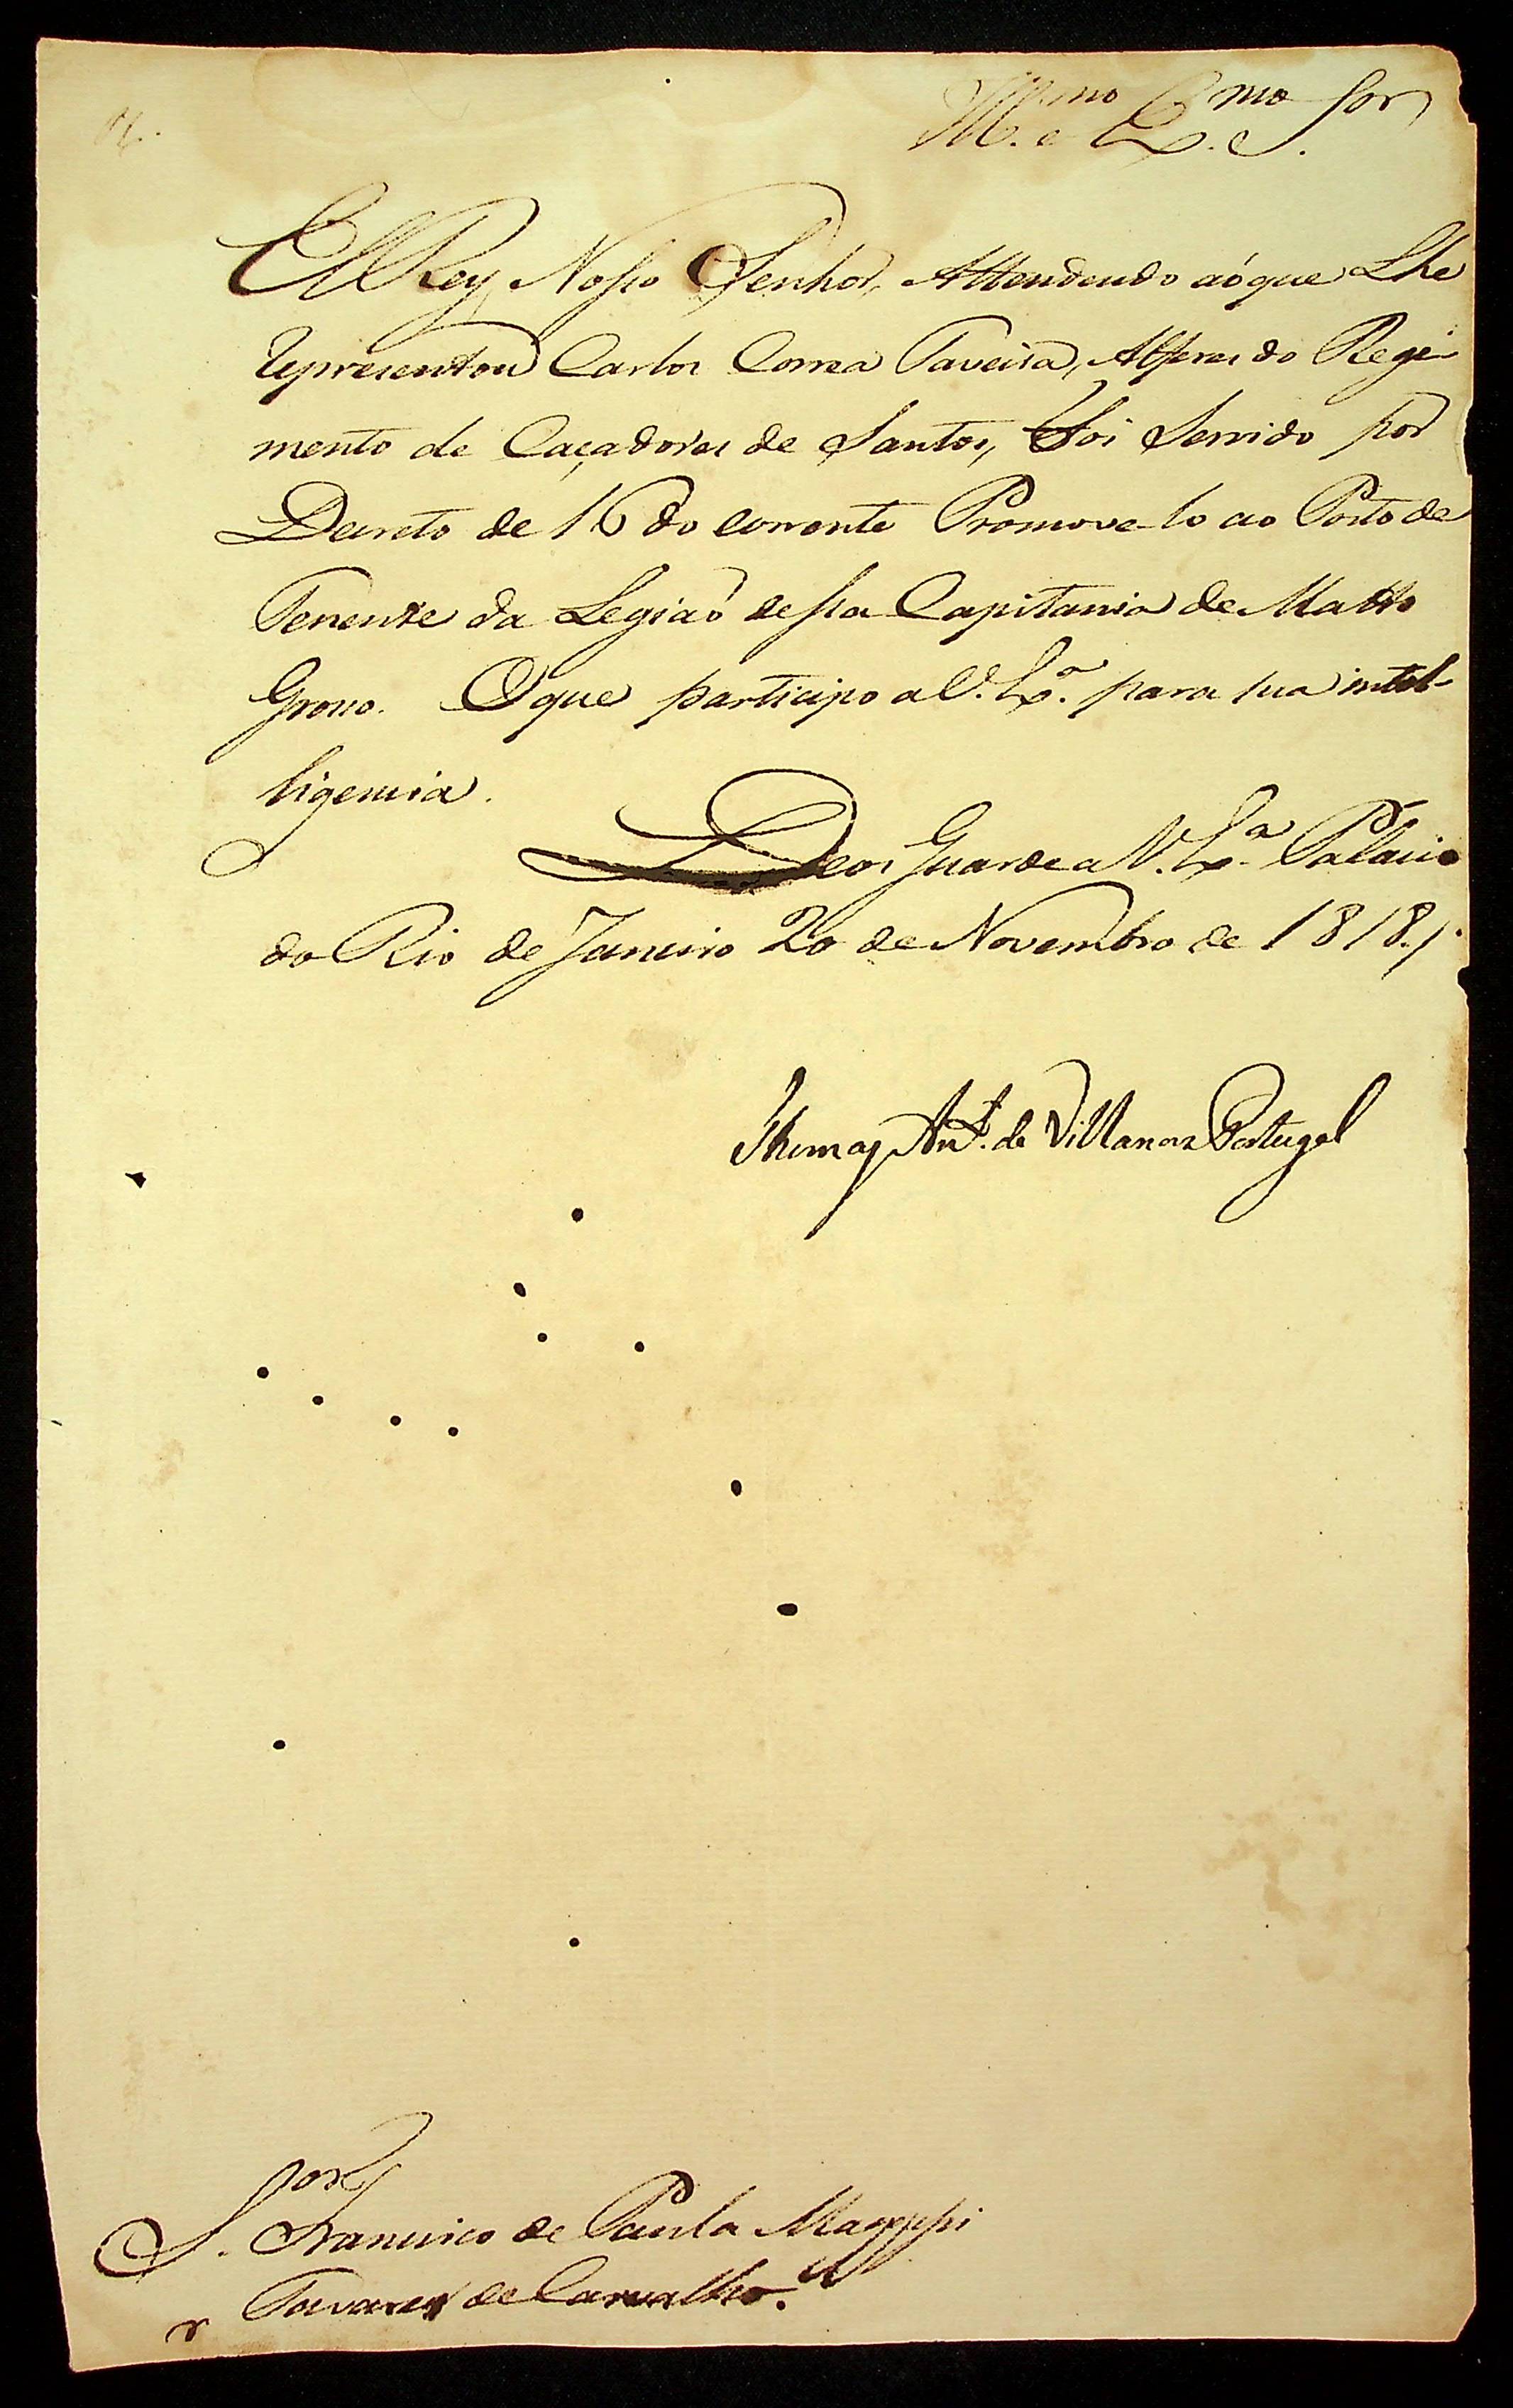 Ill.mo e Ex.mo Sor.
El Rey Nosso Senhor, Attendendo aóque Lhe
representou Carlos Correa Taveira, Alferes do Regi-
mento de Caçadores de Santos, Foi Servido por
Decreto de 16 do corrente Promove-lo ao Posto de
Tenente da Legiaõ dessa Capitania de Matto
Grosso. Oque participo a V. Ex.ª para sua intel-
ligencia.
Deos Guarde a V. Ex.ª Palacio
do Rio de Janeiro 20 de Novembro de 1818./.
Thomaz Ant.º de Villanova Portugal
Sor.
S. Francisco de Paula Maggessi
Tavares de Carvalho.